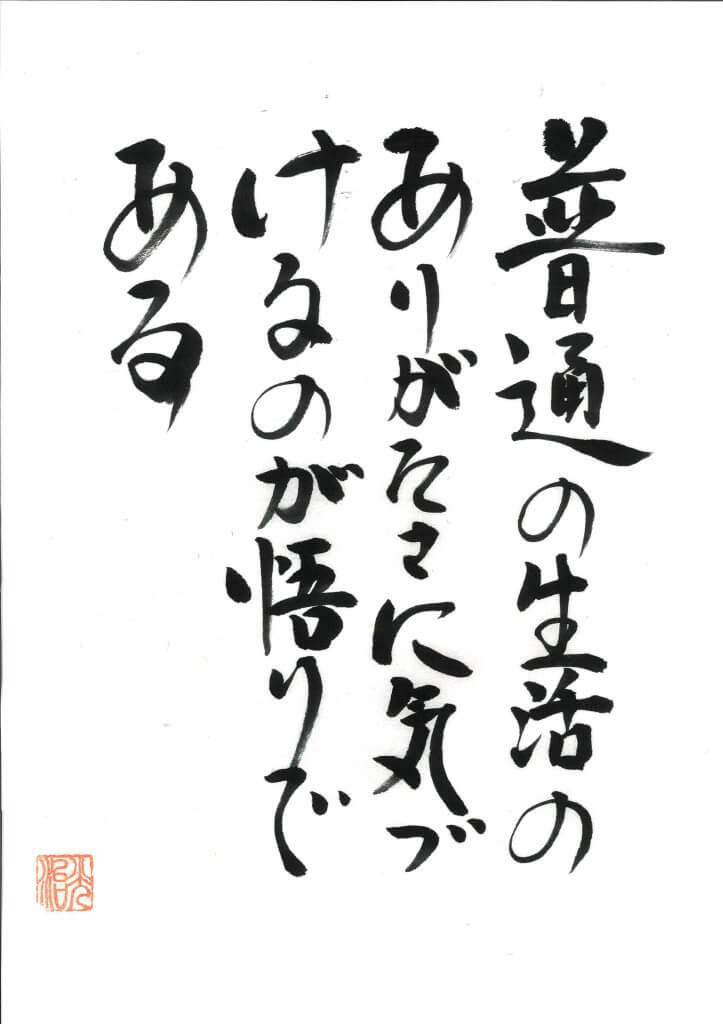 普通の生活の
ありがたさに気づ
けるのが悟りで
ある